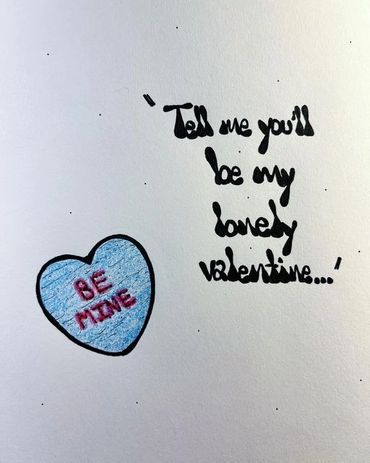 'Tell me you'll
be my
lonely
valentine...'
BE
MINE